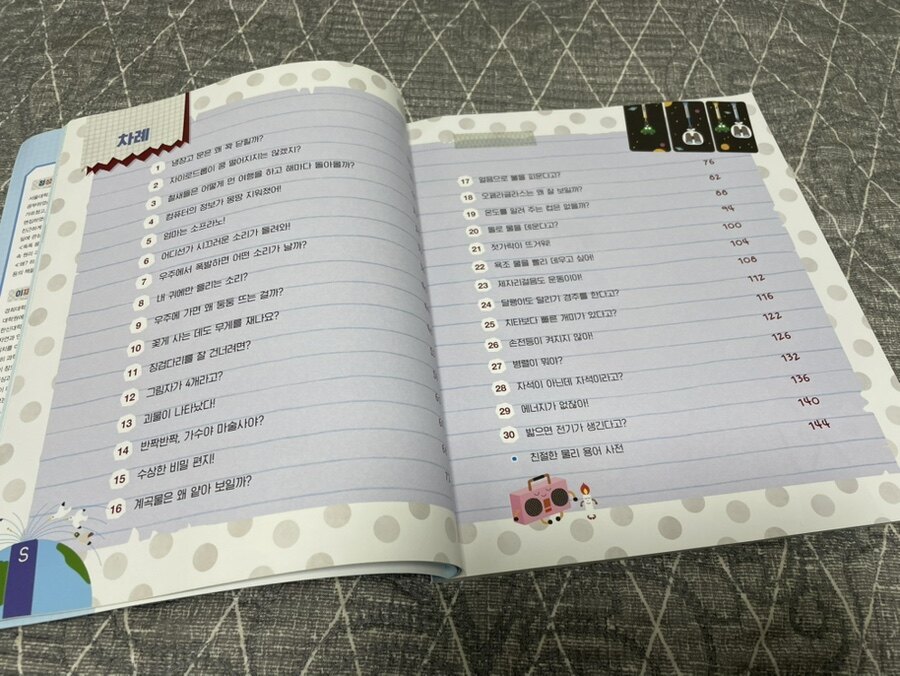 차례
1 냉장고 문은 왜 꽉 닫힐까?
2 자이로드롭이 쿵 떨어지지는 않겠지?
3 철새들은 어떻게 먼 여행을 하고 해마다 돌아올까?
4 컴퓨터의 정보가 몽땅 지워졌어!
5 엄마는 소프라노!
6 어디선가 시끄러운 소리가 들려와!
7 우주에서 폭발하면 어떤 소리가 날까?
8 내 귀에만 들리는 소리?
9 우주에 가면 왜 둥둥 뜨는 걸까?
10 꽃게 사는 데도 무게를 재나요?
11 징검다리를 잘 건너려면?
12 그림자가 4개라고?
13 괴물이 나타났다!
14 반짝반짝, 가수야 마술사야?
15 수상한 비밀 편지!
16 계곡물은 왜 얕아 보일까?
S
17 얼음으로 불을 피운다고? 76
18 오페라글라스는 왜 잘 보일까? 82
19 온도를 알려 주는 컵은 없을까? 88
20 돌로 물을 데운다고? 94
21 젓가락이 뜨거워! 100
22 욕조 물을 빨리 데우고 싶어! 104
23 제자리걸음도 운동이야! 108
24 달팽이도 달리기 경주를 한다고? 112
25 치타보다 빠른 개미가 있다고? 116
26 손전등이 켜지지 않아! 122
27 병렬이 뭐야? 126
28 자석이 아닌데 자석이라고? 132
29 에너지가 없잖아! 136
30 밟으면 전기가 생긴다고? 140
친절한 물리 용어 사전 144